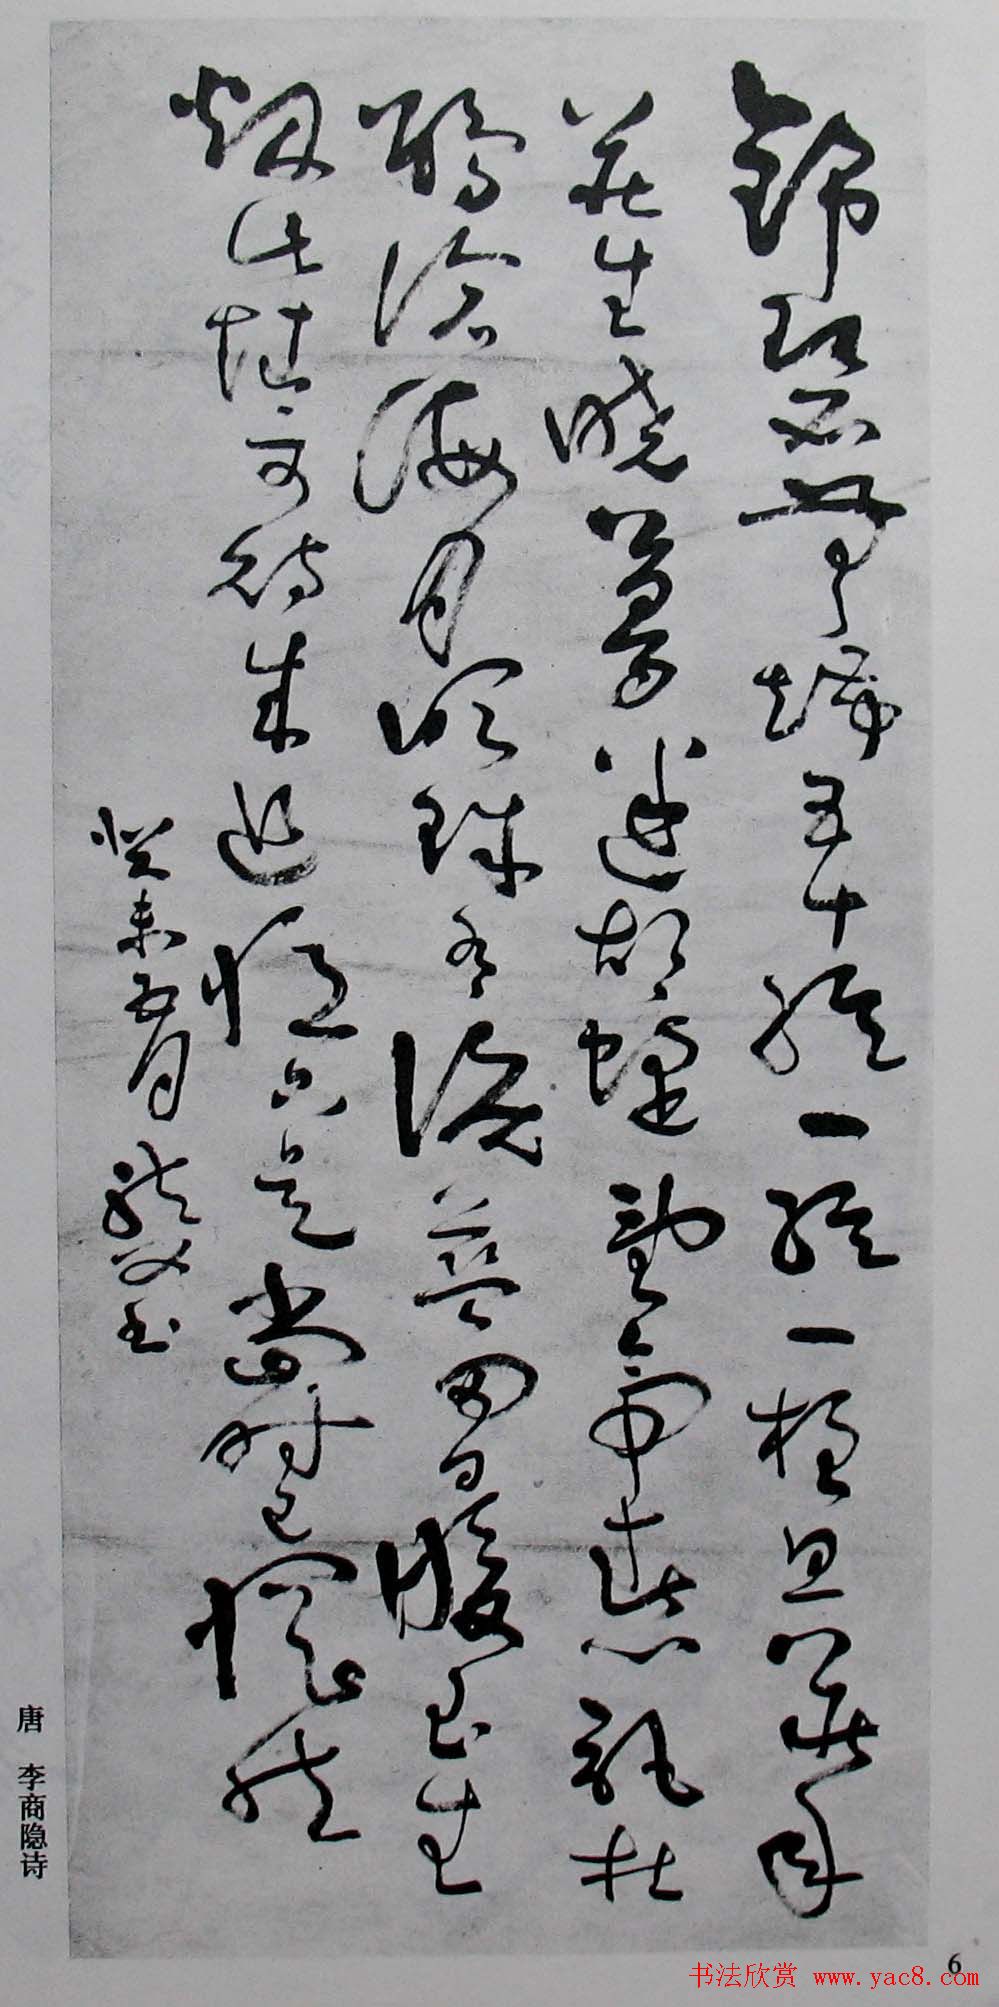 錦瑟無端五十絃一絃一柱思華年
莊生曉夢迷胡蝶望帝春心託杜
鵑滄海月明珠有淚藍田日暖玉生
烟此情可待成追憶只是當時已惘然
癸未五月
唐 李商隐诗
6
书法欣赏 www.yac8.com